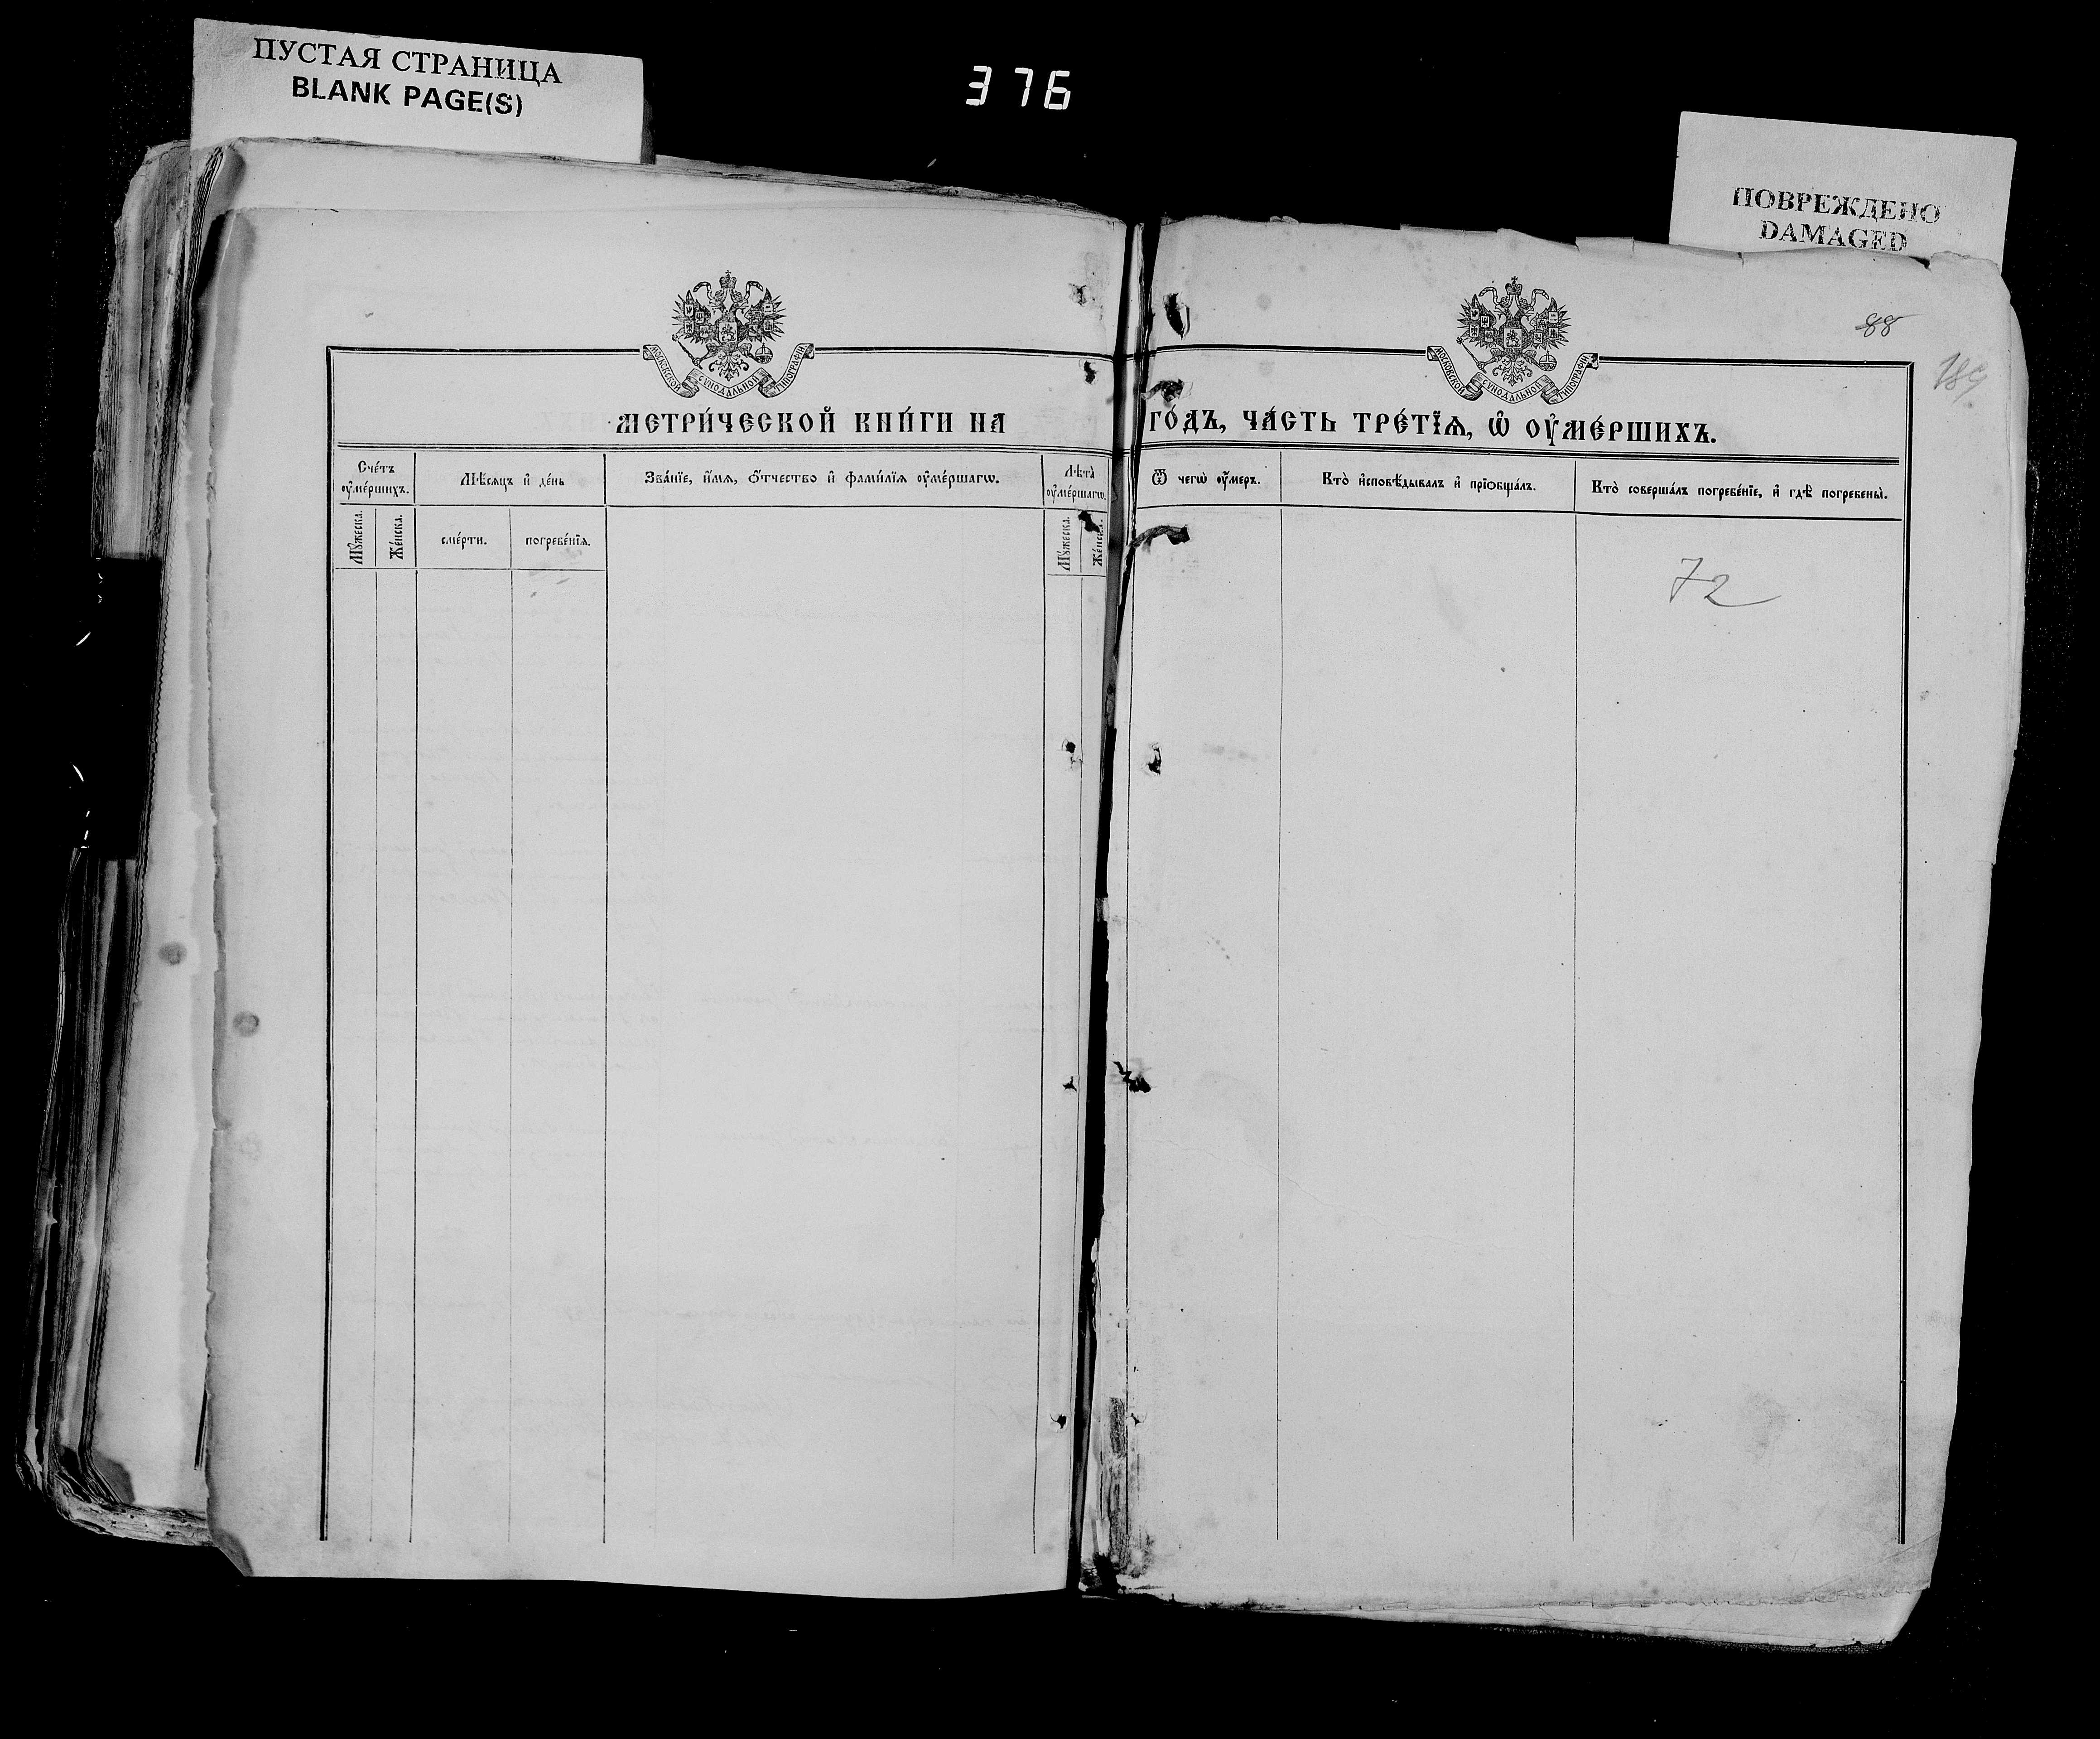 ПУСТАЯ СТРАНИЦА
BLANK PAGE(S)
376
ПОВРЕЖДЕНО
DAMAGED
88
189
МОСКОВСКОЙ СѴНОДАЛЬНОЙ ТИПОГРАФІИ
МОСКОВСКОЙ СѴНОДАЛЬНОЙ ТИПОГРАФІИ
МЕТРИ́ЧЕСКОЙ КНИ́ГИ НА
ГО́ДЪ, ЧА́СТЬ ТРЕ́ТЇѦ, Ѡ҆ ОУ҆МЕ́РШИХЪ.
Сче́тъ оу҆ме́ршихъ.
Мѣ́сяцъ и҆ де́нь
Зва́нїе, и҆́мѧ, ѻ҆́тчество и҆ фами́лїѧ оу҆ме́ршагѡ.
Лѣта̀ оу҆ме́ршагѡ.
Ѿ чегѡ̀ оу҆́меръ.
Кто̀ и҆сповѣ́дывалъ и҆ прїѡбща́лъ.
Кто̀ соверша́лъ погребе́нїе, и҆ гдѣ̀ погребены̀.
Мꙋ́жеска.
Же́нска.
сме́рти.
погребе́нїѧ.
Мꙋ́жеска.
Же́нска.
72